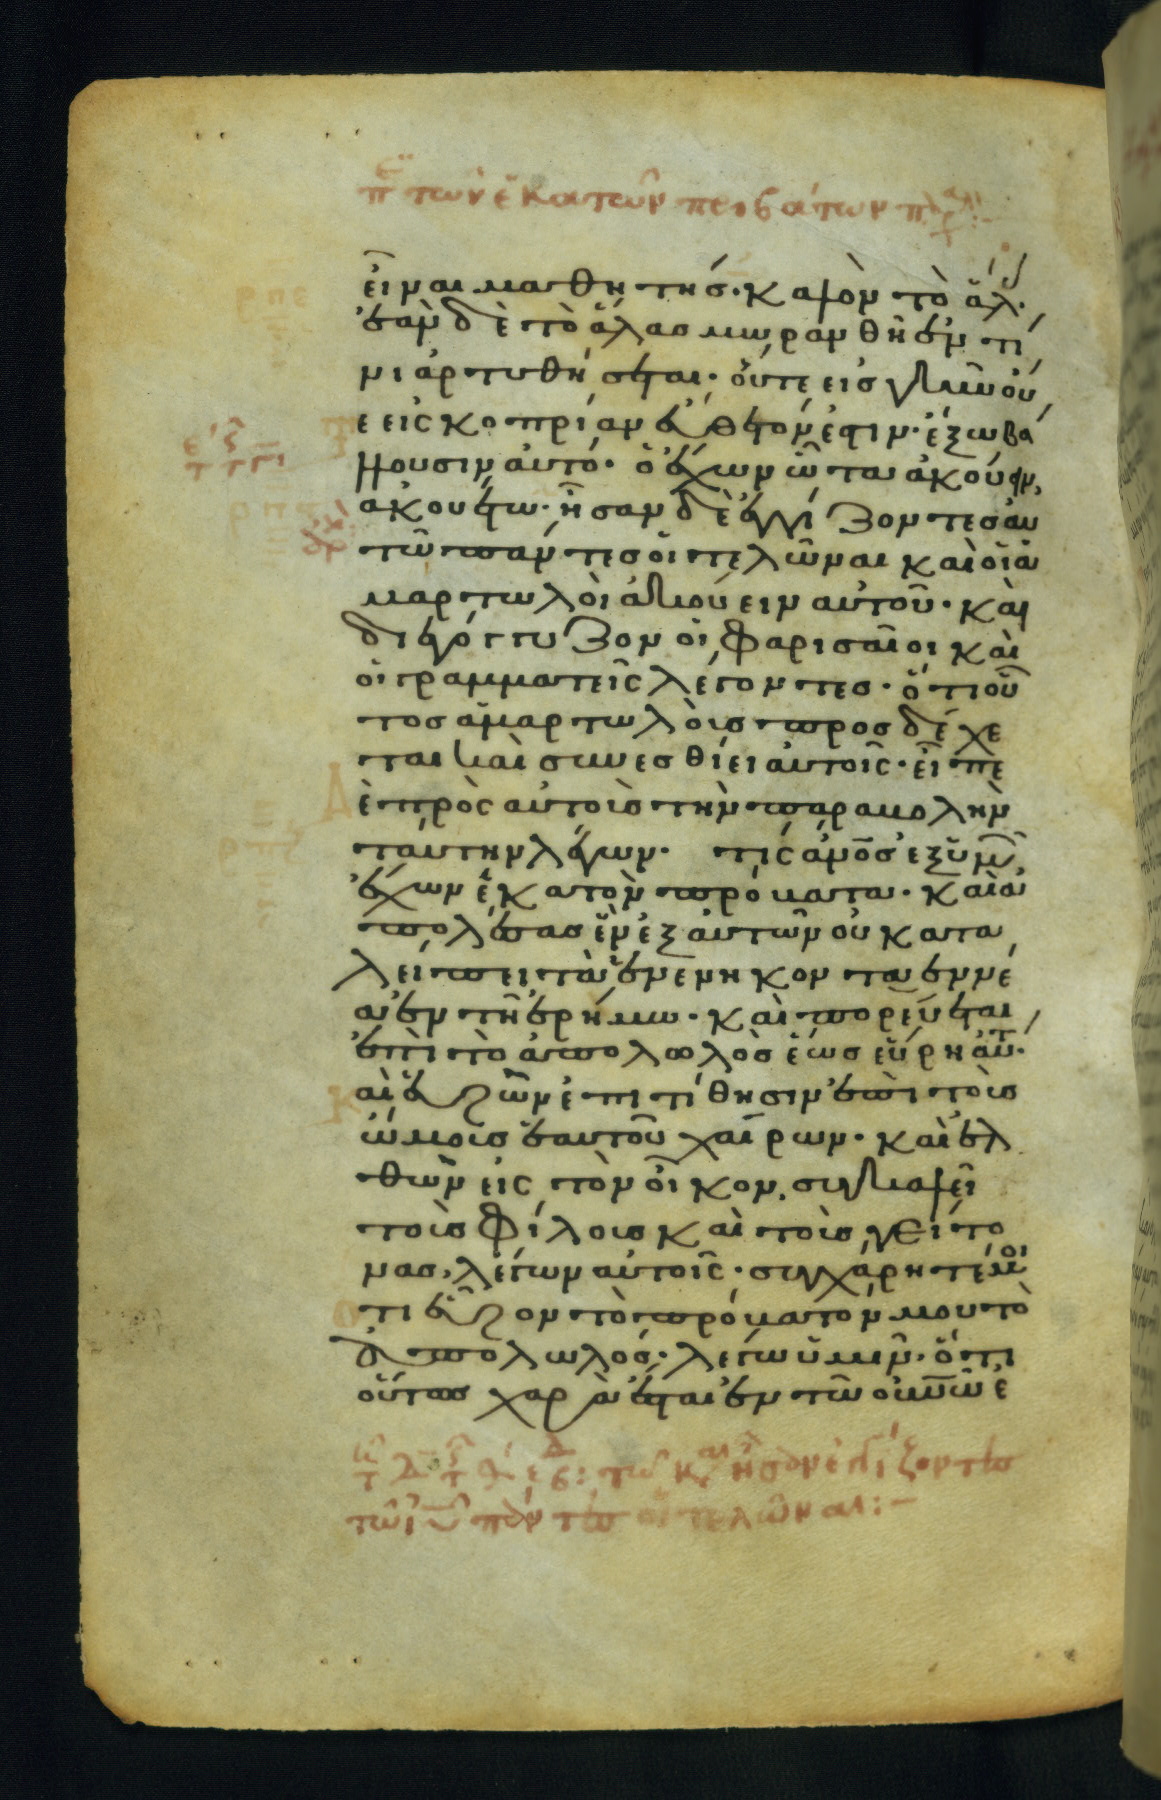 περὶ τῶν ἑκατὸν προβάτων παραβολή
εἶναι μαθητής· καλὸν τὸ ἅλας·
ἐὰν δὲ τὸ ἅλας μωρανθῇ ἐν τίνι
ἀρτυθήσεται· οὔτε εἰς γῆν οὔ
ε εἰς κοπρίαν εὔθετόν ἐστιν· ἔξω βά
λλουσιν αὐτό· ὁ ἔχων ὦτα ἀκούειν,
ἀκουέτω· ἦσαν δὲ ἐγγίζοντες αὐ
τῶ πάντες οἱ τελῶναι καὶ οἱ ἁ
μαρτωλοὶ ἀκούειν αὐτοῦ· καὶ
διεγόγγυζον οἱ Φαρισαῖοι καὶ
οἱ γραμματεῖς λέγοντες· ὅτι οὗ
τος ἁμαρτωλοὺς προσδέχε
ται καὶ συνεσθίει αὐτοῖς· εἶπε
ὲ πρὸς αὐτοὺς τὴν παραβολὴν
ταύτην λέγων· τίς ἄνος ἐξ ὑμῶν
ἔχων ἑκατὸν πρόβατα· καὶ ἀ
πολέσας ἓν ἐξ αὐτῶν οὐ κατα
λείπει τὰ ἐνενηκονταεννέ
α ἐν τῇ ἐρήμω· καὶ πορεύεται
ἐπὶ τὸ ἀπολωλὸς ἕως εὕρη αὐτ·
αὶ εὑρὼν ἐπιτίθησιν ἐπὶ τοὺς
ὤμους ἑαυτοῦ χαίρων· καὶ ἐλ
θὼν εἰς τὸν οἶκον, συγκαλεῖ
τοὺς φίλους καὶ τοὺς γείτο
νας, λέγων αὐτοῖς· συγχάρητέ μοι
τι εὗρον τὸ πρόβατόν μου τὸ
ἀπολωλός· λέγω ὑμῖν· ὅτι
οὕτως χαρὰ ἔσται ἐν τῶ οὐνῶ ἐ
τῶ καιρῶ ἦσαν ἐγγίζοντες
τῶ ιυ πάντες οἱ τελῶναι:—